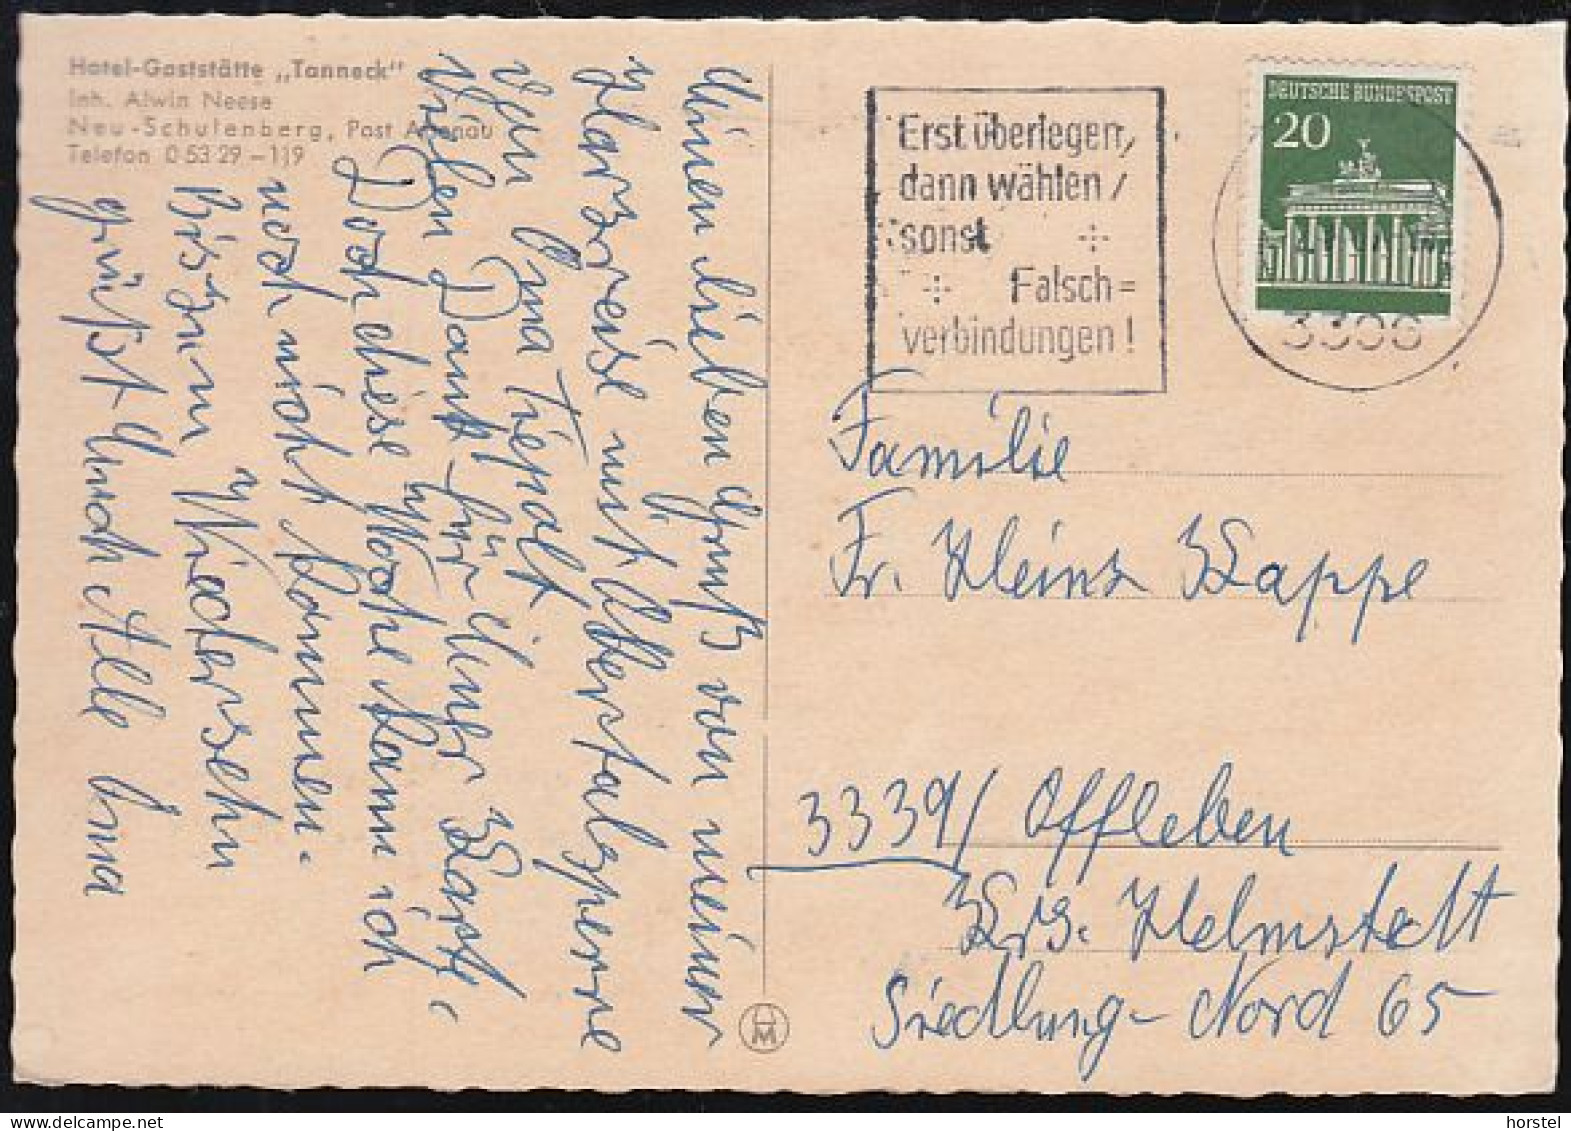 Hotel-Gaststätte „Tanneck"
Inh. Alwin Neese
Neu-Schulenberg, Post Altenau
Telefon 0 53 29 – 119
Einen lieben Gruß von meiner
Harzreise mit Okertalsperre
von Oma Tiepolt
Vielen Dank für Eure Karte,
Doch diese Woche kann ich
noch nicht kommen.
Bis zum Wiedersehn
grüßt Euch Alle Oma
Erst überlegen,
dann wählen /
sonst
Falsch=
verbindungen!
DEUTSCHE BUNDESPOST
20
Familie
Fr. Heinz Kappe
3339 / Offleben
Krs. Helmstedt
Siedlung-Nord 65
horstel